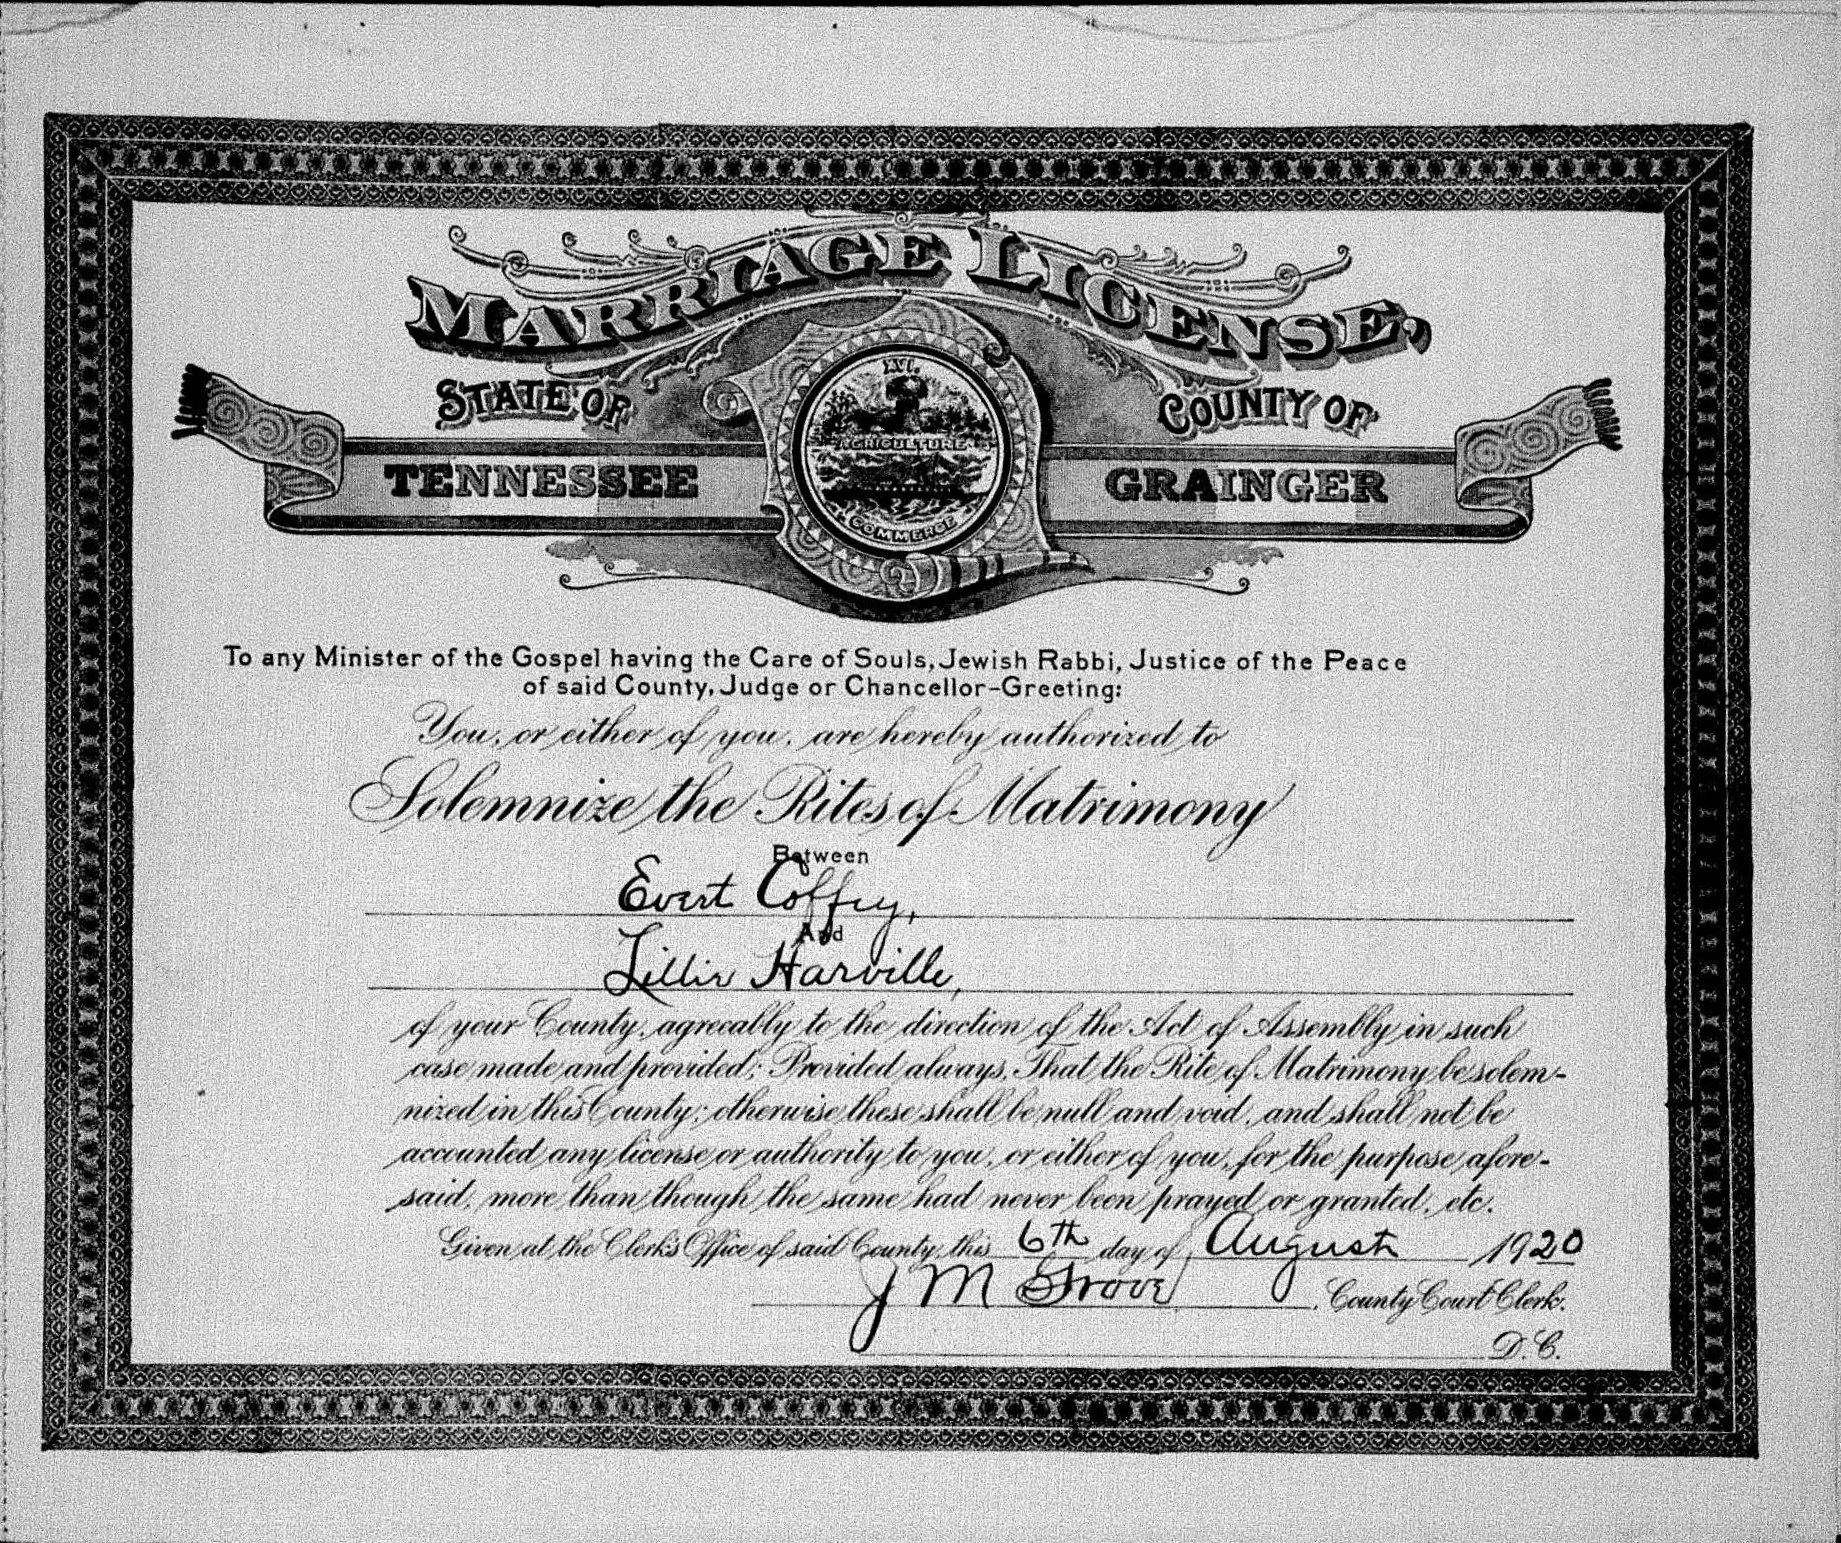 MARRIAGE LICENSE,
STATE OF
TENNESSEE
COUNTY OF
GRAINGER
XVI.
AGRICULTURE
COMMERCE
To any Minister of the Gospel having the Care of Souls, Jewish Rabbi, Justice of the Peace
of said County, Judge or Chancellor-Greeting:
You, or either of you, are hereby authorized to
Solemnize the Rites of Matrimony
Between
Evert Coffey,
And
Lillie Harville,
of your County, agreeably to the direction of the Act of Assembly in such
case made and provided; Provided always, That the Rite of Matrimony be solem-
nized in this County; otherwise these shall be null and void, and shall not be
accounted any license or authority to you, or either of you, for the purpose afore-
said, more than though the same had never been prayed or granted, etc.
Given at the Clerk's Office of said County, this 6th day of August 1920
J M Grove, County Court Clerk.
D. C.